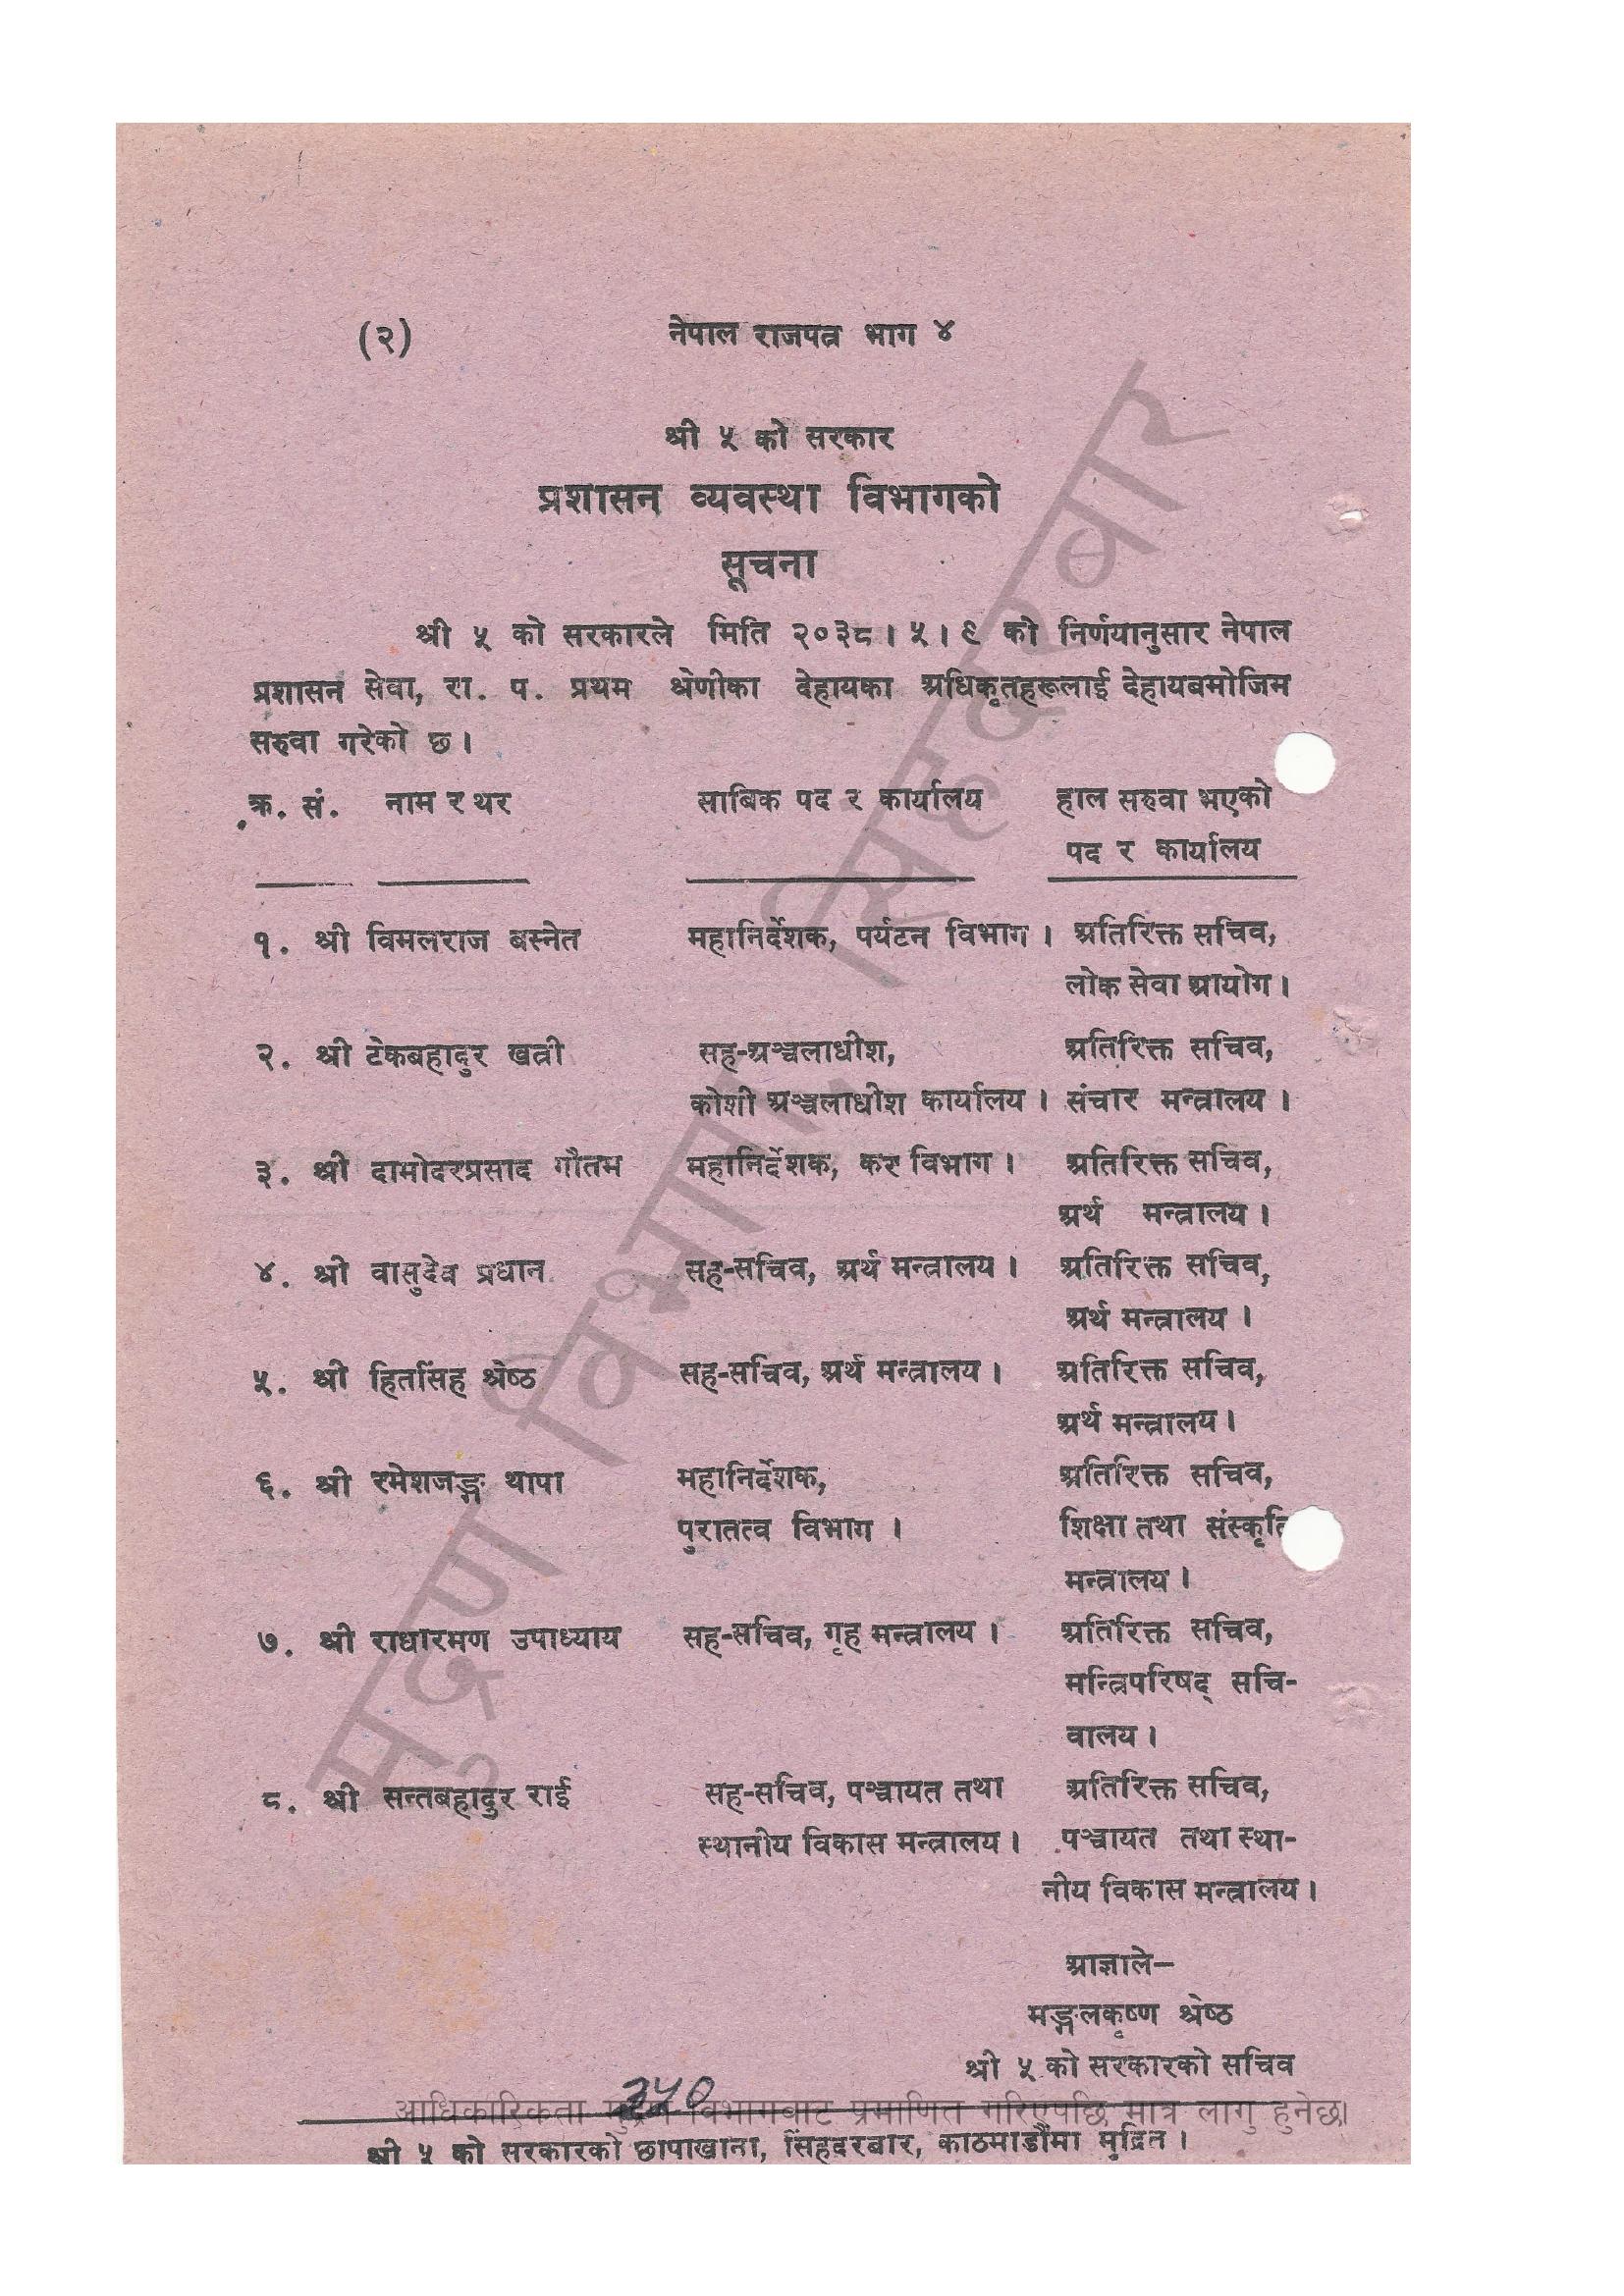 (२) नेपाल राजपत्र भाग ४
श्री ५ को सरकार
प्रशासन व्यवस्था विभागको
सूचना
श्री ५ को सरकारले मिति २०३८।५।९ को निर्णयानुसार नेपाल
प्रशासन सेवा, रा. प. प्रथम श्रेणीका देहायका अधिकृतहरूलाई देहायबमोजिम
सरुवा गरेको छ।
क्र. सं. नाम र थर साबिक पद र कार्यालय हाल सरुवा भएको
पद र कार्यालय
१. श्री विमलराज बस्नेत महानिर्देशक, पर्यटन विभाग। अतिरिक्त सचिव,
लोक सेवा आयोग।
२. श्री टेकबहादुर खत्री सह-अञ्चलाधीश, अतिरिक्त सचिव,
कोशी अञ्चलाधीश कार्यालय। संचार मन्त्रालय।
३. श्री दामोदरप्रसाद गौतम महानिर्देशक, कर विभाग। अतिरिक्त सचिव,
अर्थ मन्त्रालय।
४. श्री वासुदेव प्रधान सह-सचिव, अर्थ मन्त्रालय। अतिरिक्त सचिव,
अर्थ मन्त्रालय।
५. श्री हितसिंह श्रेष्ठ सह-सचिव, अर्थ मन्त्रालय। अतिरिक्त सचिव,
अर्थ मन्त्रालय।
६. श्री रमेशजङ्ग थापा महानिर्देशक, अतिरिक्त सचिव,
पुरातत्व विभाग। शिक्षा तथा संस्कृति
मन्त्रालय।
७. श्री राधारमण उपाध्याय सह-सचिव, गृह मन्त्रालय। अतिरिक्त सचिव,
मन्त्रिपरिषद् सचि-
वालय।
८. श्री सन्तबहादुर राई सह-सचिव, पञ्चायत तथा अतिरिक्त सचिव,
स्थानीय विकास मन्त्रालय। पञ्चायत तथा स्था-
नीय विकास मन्त्रालय।
आज्ञाले—
मङ्गलकृष्ण श्रेष्ठ
श्री ५ को सरकारको सचिव
३५०
आधिकारिकता मुद्रण विभागबाट प्रमाणित गरिएपछि मात्र लागु हुनेछ।
श्री ५ को सरकारको छापाखाना, सिंहदरबार, काठमाडौंमा मुद्रित।
मुद्रण विभाग, सिंहदरबार